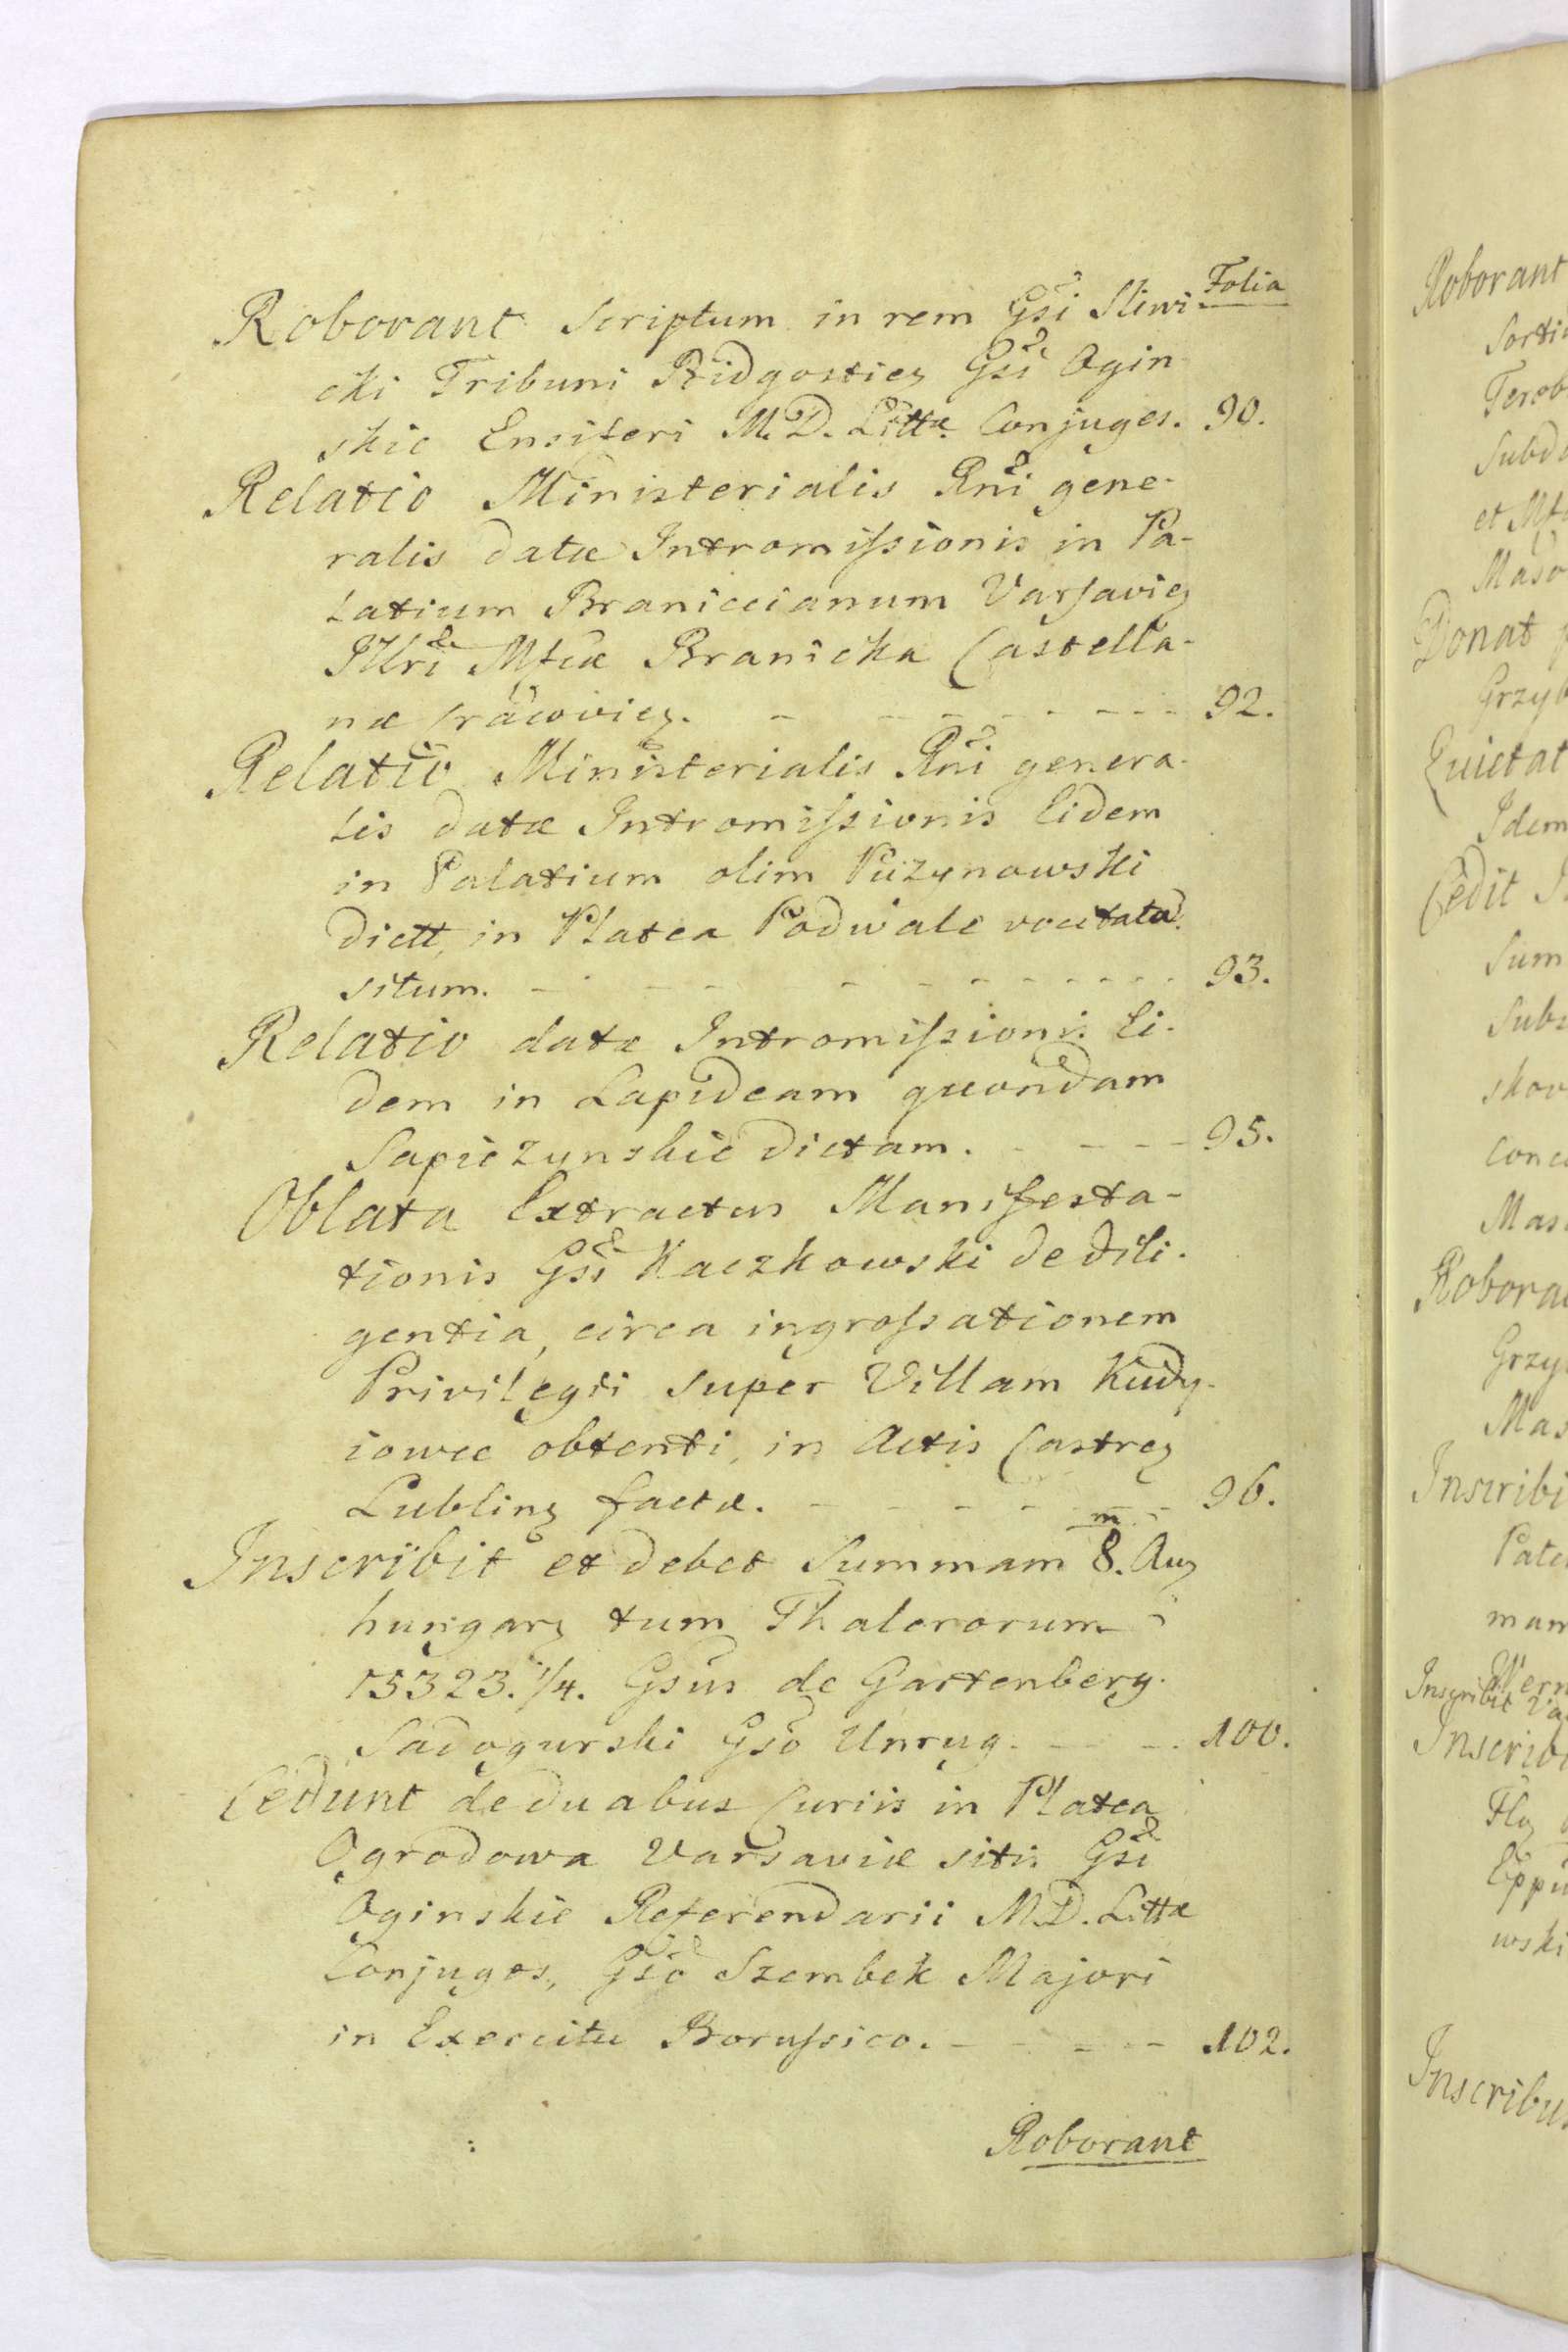 Folia
Roborant Scriptum in rem Gsi Sliwi-
cki Tribuni Bidgosties Gsi Ogin-
skie Ensiferi M. D. Littæ Conjuges. 90.
Relatio Ministerialis Rni gene-
ralis datæ Intromissionis in Pa-
latium Braniccianum Varsavies
Illri Mfcæ Branicka Castella-
næ Cracovies. - - - - - - - 92.
Relatio Ministerialis Rni genera-
lis datæ Intromissionis Eidem
in Palatium olim Puzynowski
dictt, in Platea Podwale vocitata
situm. - - - - - - - - - 93.
Relatio datæ Intromissionis Ei-
dem in Lapideam quondam
Sapiezynskie dictam. - - - - 95.
Oblata Extractus Manifesta-
tionis Gsi Kaczkowski de dili-
gentia, circa ingrossationem
Privilegii super Villam Kudy-
iowce obtenti, in Actis Castres
Lublins factæ. - - - - - - 96.
Inscribit et debet Summam 8. m Aur
hungars tum Thalerorum
15323. 1/4. Gsus de Gartenberg
Sadogurski Gso Unrug. - - - 100.
Cedunt de duabus Curiis in Platea
Ogrodowa Varsaviæ sitis Gsi
Oginskie Referendarii M.D. Littæ
Conjuges, Gso Szembek Majori
in Exercitu Borussico. - - - - 102.
Roborant
Roborant
Sorti
Terob
Subd
et Mf
Maso
Donat
Grzyb
Quietat
Idem
Cedit
Sum
Subs
skow
conce
Mas
Robora
Grzy
Mas
Inscribi
Pate
mam
Inscribit
Inscrib
Flor
Eppu
wski
Inscribu